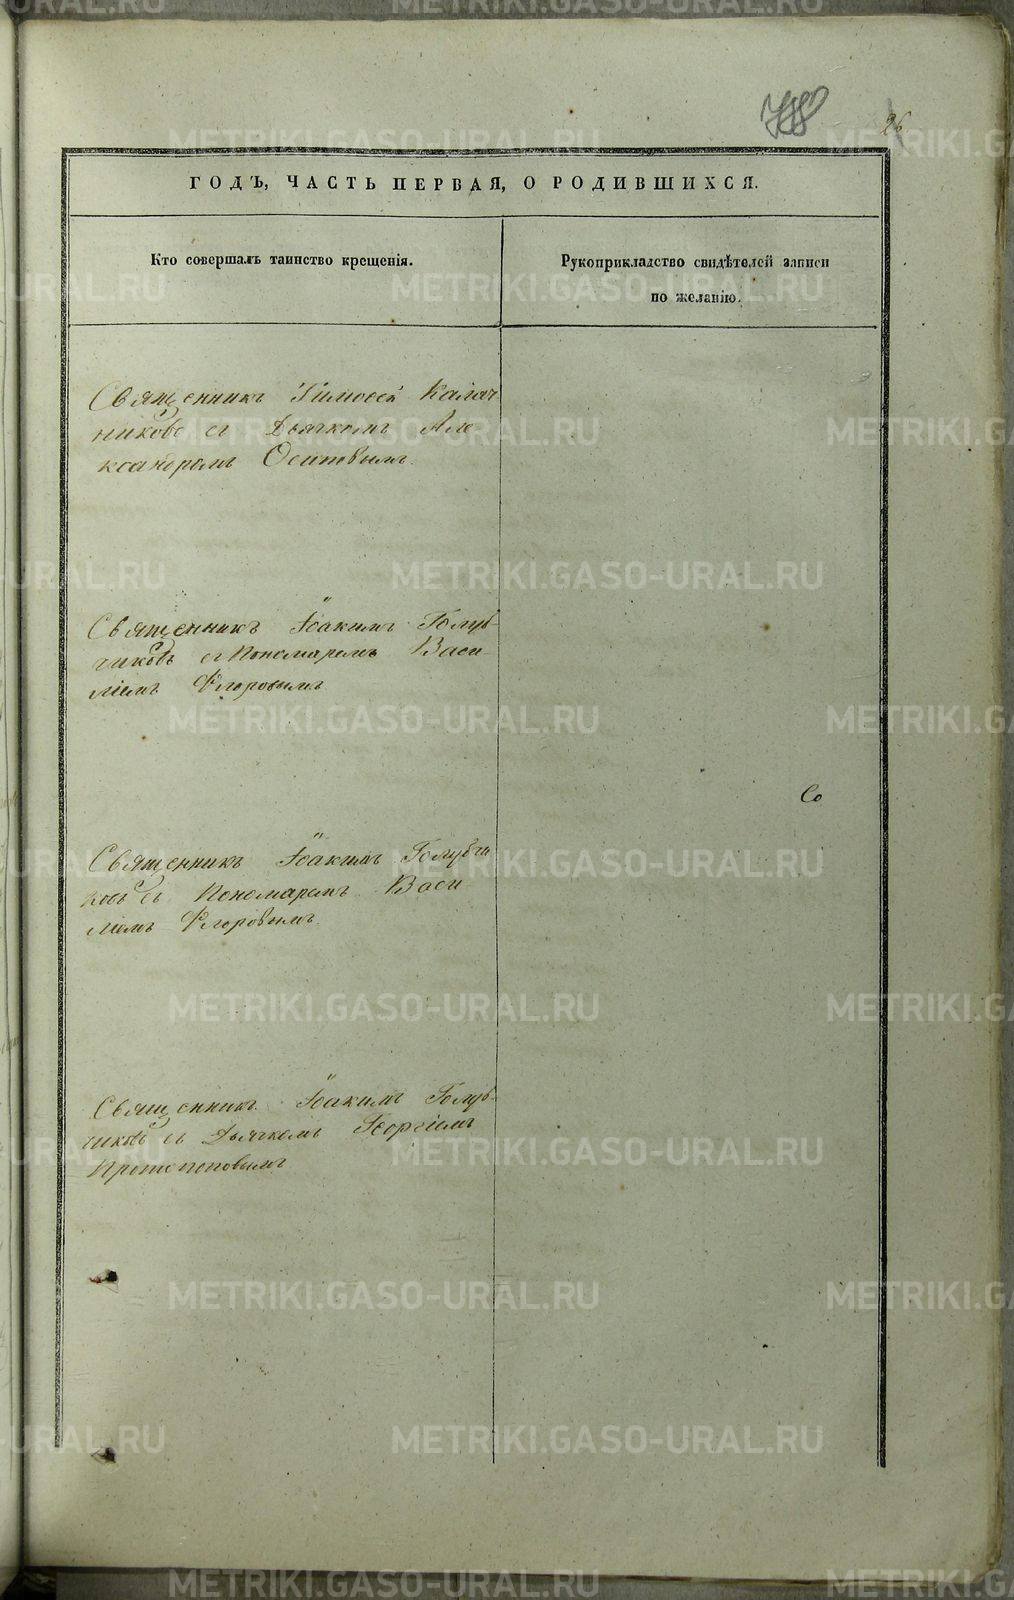 26
ГОДЪ, ЧАСТЬ ПЕРВАЯ, О РОДИВШИХСЯ.
Кто совершалъ таинство крещенія.
Рукоприкладство свидѣтелей записи
по желанію.
Священникъ Тимоѳей Калач
никовъ съ Дьячкомъ Але
ксандромъ Осиповымъ.
Священникъ Іоакимъ Голуб-
чиковъ съ Пономаремъ Васи
ліемъ Флоровымъ
Со
Священникъ Іоакимъ Голубчи
ковъ съ Пономаремъ Васи
ліемъ Флоровымъ.
Священникъ Іоакимъ Голуб-
чиковъ съ Дьячкомъ Георгіемъ
Протопоповымъ
METRIKI.GASO-URAL.RU